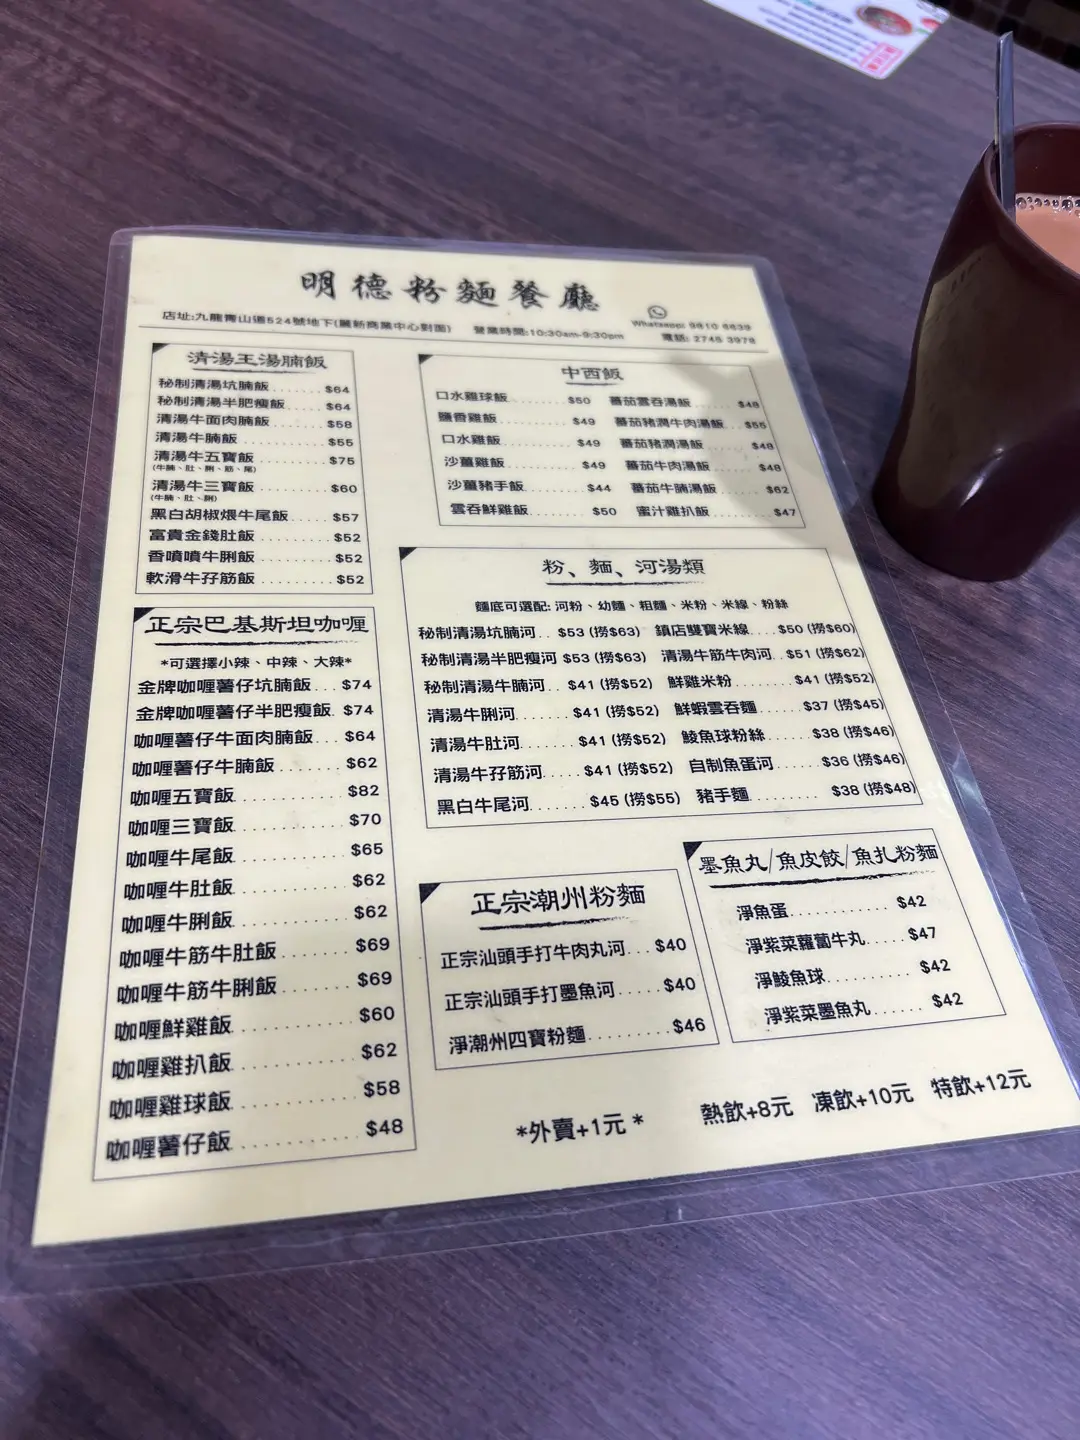 明德粉麵餐廳
店址:九龍青山道524號地下(麗新商業中心對面) 營業時間:10:30am-9:30pm
Whatsapp: 9810 6639
電話: 2745 3978
清湯王湯腩飯
秘制清湯坑腩飯 $64
秘制清湯半肥瘦飯 $64
清湯牛面肉腩飯 $58
清湯牛腩飯 $55
清湯牛五寶飯 $75
(牛腩、肚、脷、筋、尾)
清湯牛三寶飯 $60
(牛腩、肚、脷)
黑白胡椒煨牛尾飯 $57
富貴金錢肚飯 $52
香噴噴牛脷飯 $52
軟滑牛孖筋飯 $52
正宗巴基斯坦咖喱
*可選擇小辣、中辣、大辣*
金牌咖喱薯仔坑腩飯 $74
金牌咖喱薯仔半肥瘦飯 $74
咖喱薯仔牛面肉腩飯 $64
咖喱薯仔牛腩飯 $62
咖喱五寶飯 $82
咖喱三寶飯 $70
咖喱牛尾飯 $65
咖喱牛肚飯 $62
咖喱牛脷飯 $62
咖喱牛筋牛肚飯 $69
咖喱牛筋牛脷飯 $69
咖喱鮮雞飯 $60
咖喱雞扒飯 $62
咖喱雞球飯 $58
咖喱薯仔飯 $48
中西飯
口水雞球飯 $50 蕃茄雲吞湯飯 $48
鹽香雞飯 $49 蕃茄豬潤牛肉湯飯 $55
口水雞飯 $49 蕃茄豬潤湯飯 $48
沙薑雞飯 $49 蕃茄牛肉湯飯 $48
沙薑豬手飯 $44 蕃茄牛腩湯飯 $62
雲吞鮮雞飯 $50 蜜汁雞扒飯 $47
粉、麵、河湯類
麵底可選配: 河粉、幼麵、粗麵、米粉、米線、粉絲
秘制清湯坑腩河 $53 (撈$63) 鎮店雙寶米線 $50 (撈$60)
秘制清湯半肥瘦河 $53 (撈$63) 清湯牛筋牛肉河 $51 (撈$62)
秘制清湯牛腩河 $41 (撈$52) 鮮雞米粉 $41 (撈$52)
清湯牛脷河 $41 (撈$52) 鮮蝦雲吞麵 $37 (撈$45)
清湯牛肚河 $41 (撈$52) 鯪魚球粉絲 $38 (撈$46)
清湯牛孖筋河 $41 (撈$52) 自制魚蛋河 $36 (撈$46)
黑白牛尾河 $45 (撈$55) 豬手麵 $38 (撈$48)
正宗潮州粉麵
正宗汕頭手打牛肉丸河 $40
正宗汕頭手打墨魚河 $40
淨潮州四寶粉麵 $46
墨魚丸/魚皮餃/魚扎粉麵
淨魚蛋 $42
淨紫菜蘿蔔牛丸 $47
淨鯪魚球 $42
淨紫菜墨魚丸 $42
*外賣+1元* 熱飲+8元 凍飲+10元 特飲+12元